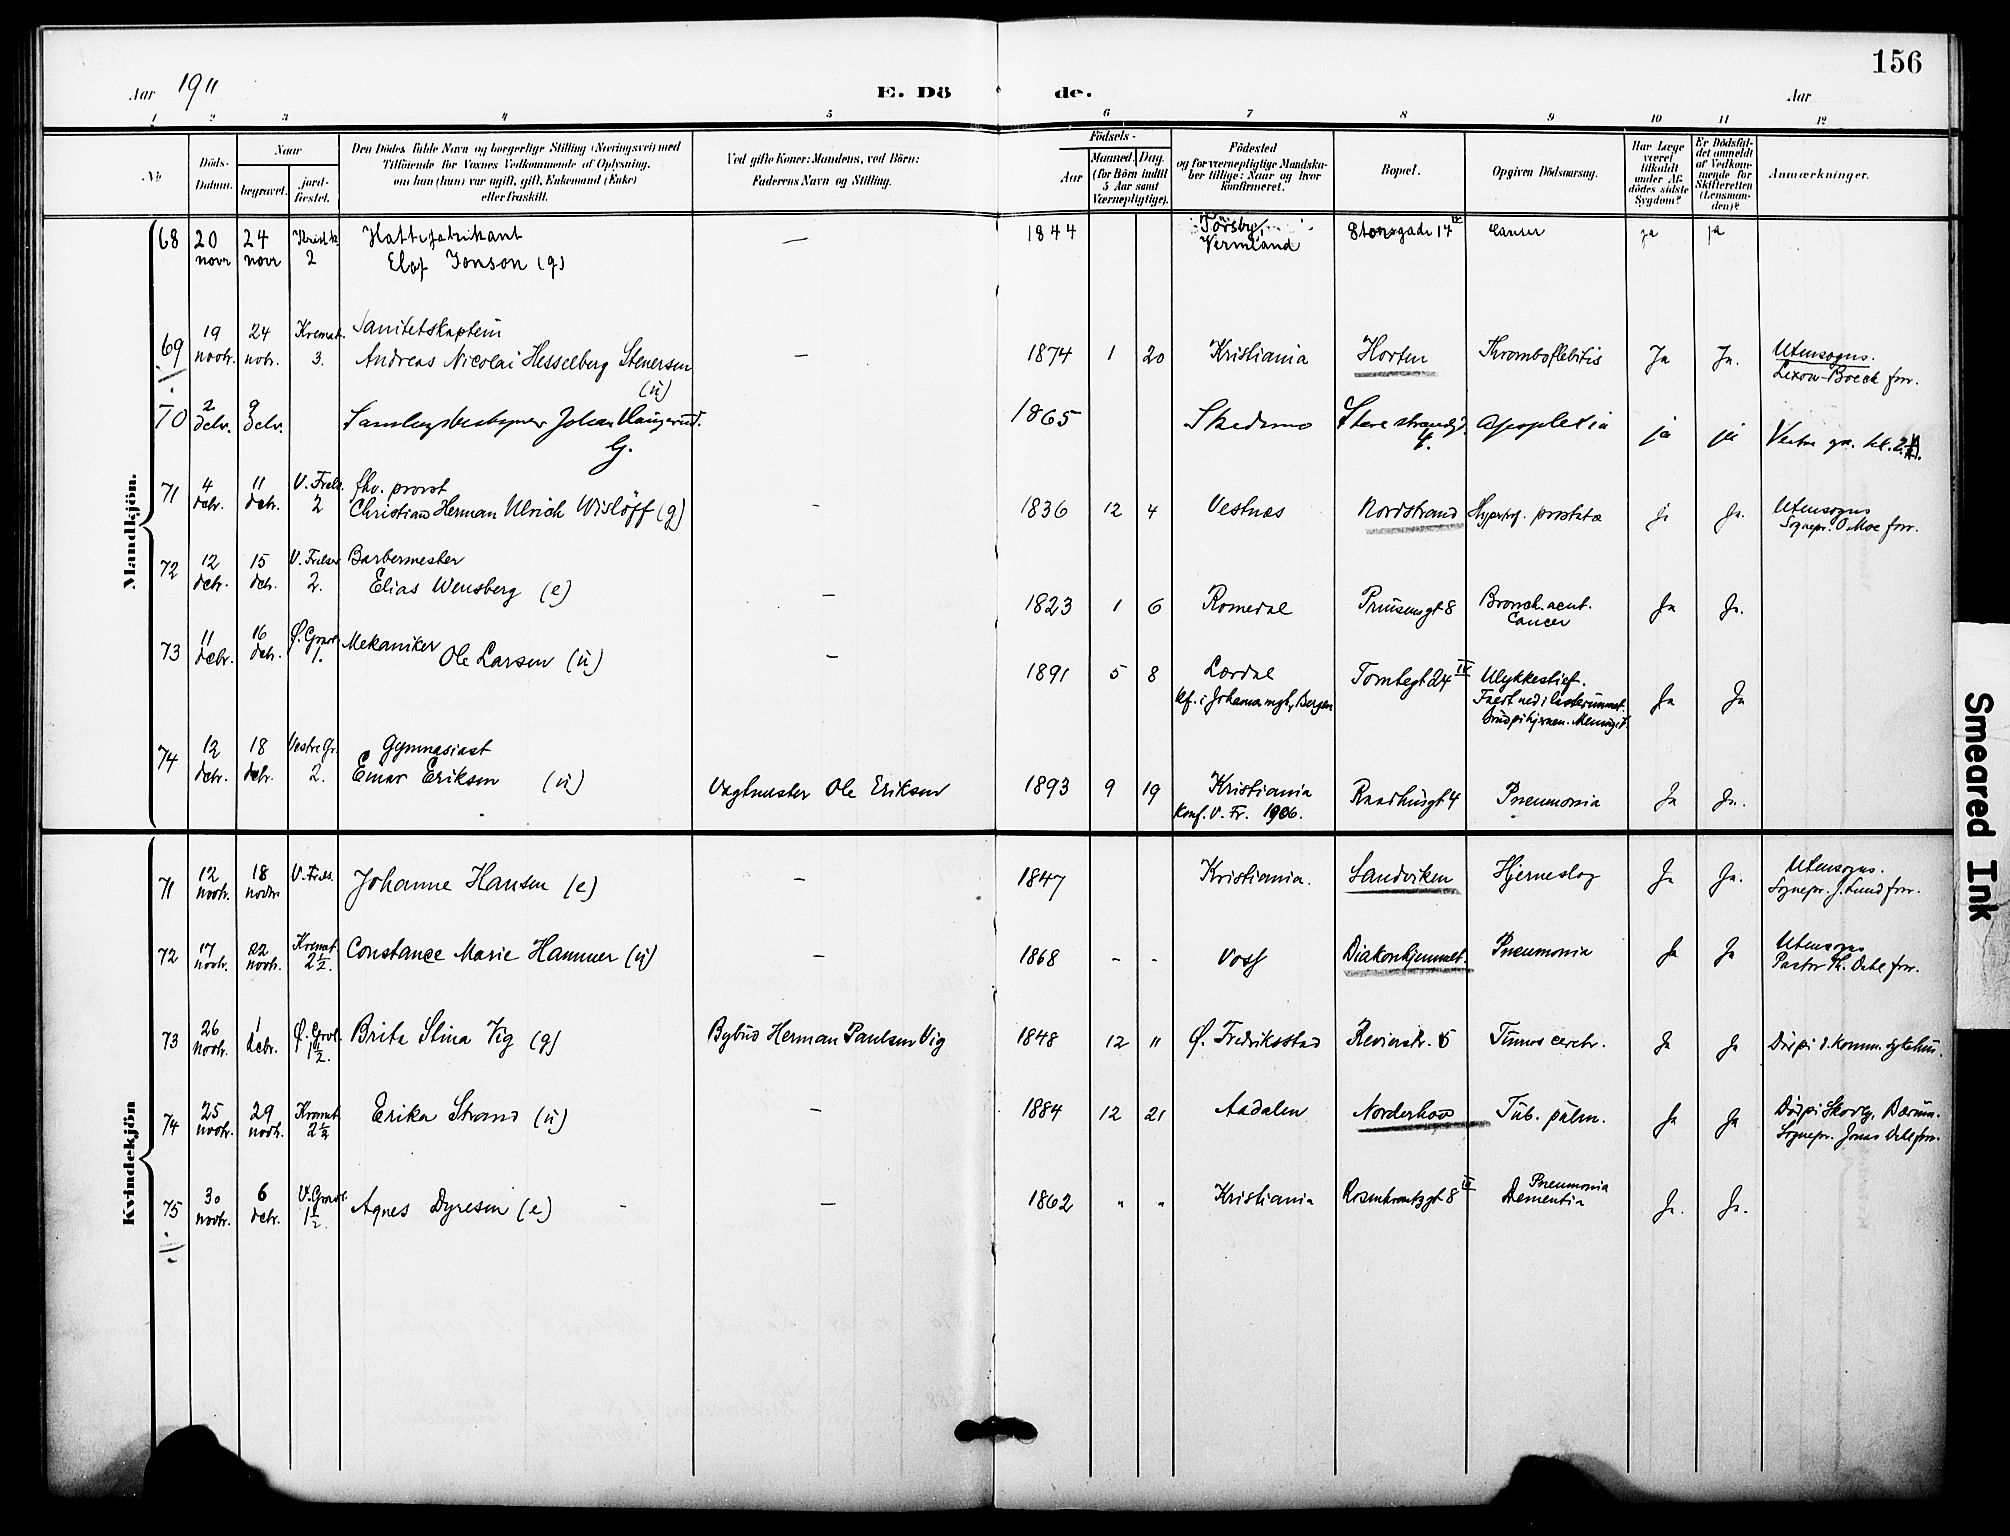 156
Aar 1911
E. Dö de.
Aar
1 2 3 4 5 6 7 8 9 10 11 12
No
Döds-Datum.
Naar
begravet.
jordfæstet.
Den Dödes fulde Navn og borgerlige Stilling (Næringsvei) med
Tilföiende for Voxnes Vedkommende af Oplysning,
om han (hun) var ugift, gift, Enkemand (Enke)
eller fraskilt.
Ved gifte Koner: Mandens, ved Börn:
Faderens Navn og Stilling.
Födsels-
Aar
Maaned. Dag.
(for Börn indtil
5 Aar samt
Værnepligtige).
Födested
og for værnepligtige Mandskaber
tillige: Naar og hvor
konfirmeret.
Bopæl.
Opgiven Dödsaarsag.
Har Læge
været
tilkaldt
under Afdödes
sidste
Sygdom?
Er Dödsfaldet
anmeldt
af Vedkommende
for
Skifteretten
(Lensmanden)?
Anmærkninger.
Mandkjön.
68 20 novr 24 novr 2 Hattefabrikant
Elof Jonson (g) — 1844 Torsby, Vermland Storgade 17 IV Cancer ja ja
69 19 novbr. 24 nobr. Kremat. 3. Sanitetskaptein
Andreas Nicolai Hesselberg Stenersen (ü) — 1874 1 20 Kristiania Horten Thromboflebitis Ja Ja. Utensogns.
Lexow-Boeck forr.
70 2 debr. 9 debr. Johan Haugerud.
G. 1865 Skedsmo Store strandg. 4. Apoplexia ja ja Vestre gr. kl. 2
71 4 debr. 11 debr. V. Frels. 2 fhv. provst
Christian Herman Ulrich Wislöff (g) — 1836 12 4 Vestnes Nordstrand Hypertrof. prostatæ ja Ja. Utensogns
Sognepr. O. Moe forr.
72 12 debr. 15 debr. V. Frelser 2. Barbermester
Elias Wensberg (e) — 1823 1 6 Romedal Prinsensgt 8 Bronch. acut.
Cancer Ja Ja.
73 11 debr. 16 debr. Ø. Gravl. 1. Mekaniker
Ole Larsen (ü) — 1891 5 8 Lærdal
Kf. i Johannesmgh, Bergen Tomtegt 24 IV Ulykkestilf.
Faldt ned i lasterummet. Meningit. Ja Ja
74 12 debr. 18 debr. Vestre Gr. 2. Gymnasiast
Einar Eriksen (ü) Vagtmester Ole Eriksen 1893 9 19 Kristiania
Konf. V. Fr. 1906. Raadhusgt 4 Pneumonia Ja Ja.
Kvindekjön
71 12 novbr. 18 novbr V. Frels. Johanne Hansen (e) — 1847 Kristiania. Sandviken Hjerneslag Ja Ja. Utensogns.
Sognepr. J. Lund forr.
72 17 novbr. 22 novbr. Kremat. 2½. Constance Marie Hammer (ü) — 1868 - - Voss Diakonhjemmet. Pneumonia Ja Ja Utensogns
Pastor Th. Dahl forr.
73 26 novbr. 1 debr. Ø. Gravl. 1½. Brita Stina Vig (g) Bybud Herman Paulsen Vig 1848 12 11 Ø. Fredriksstad Revierstr. 5 Tumor cerebr. Ja Ja Död på d. komm. sykehus.
74 25 novbr. 29 novbr. Kremat. 2½ Erika Strand (ü) — 1884 12 21 Aadalen Norderhov Tub. pulm. Ja Ja Död på Skovly, Bærum.
Sognepr. Jonas Dahl forr.
75 30 novbr. 6 debr. V. Gravl. 1½. Agnes Dyresen (e) — 1862 " " Kristiania Rosenkrantzgt 8 IV Pneumonia
Dementia Ja. Ja.
Smeared Ink